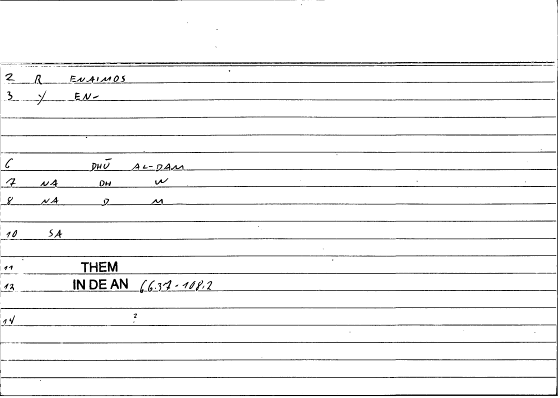 2 R ENAIMOS
3 y EN-
6 DHŪ AL-DAM
7 NA DH W
8 NA D M
10 SA
11 THEM
12 IN DE AN 66.37-108.2
14 ?